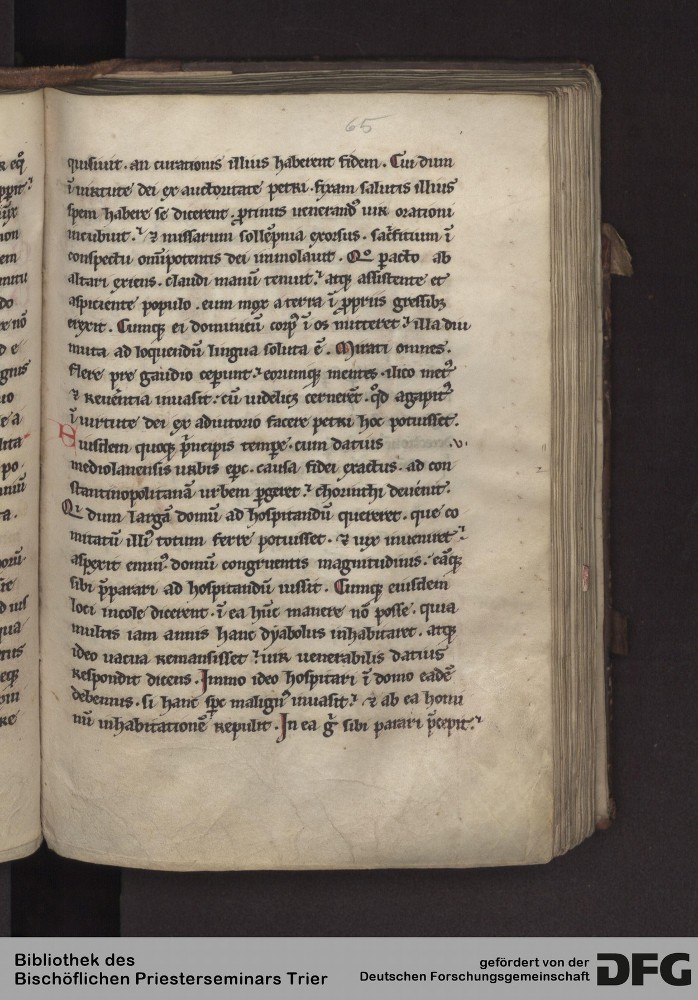 65
quisiuit . an curationis illius haberent fidem . Cui dum
ĩ uirtute dei ex auctoritate petri . fixam salutis illius
spem habere se dicerent . ꝓtinus uenerandꝰ uir orationi
incubuit . ⁊ missarum sollẽpnia exorsus . sac̃ficium ĩ
conspectu om̃ipotentis dei immolauit . Qͦ ꝑacto ab
altari exiens . claudi manũ tenuit . atqꝫ assistente et
aspiciente populo . eum mox a terra ĩ ꝓprijs gressibꝫ
erexit . Cumqꝫ ei dominicũ corpꝰ ĩ os mitteret . illa diu
muta ad loquendũ lingua soluta ẽ . Mirati omnes .
flere pre gaudio ceperunt . eorumqꝫ mentes . ilico metꝰ
⁊ reuẽntia inuasit . cũ uidelicꝫ cernerẽt . qͦd agapitꝰ
ĩ uirtute dei ex adiutorio facere petri hoc potuisset .
Eiusdem quoqꝫ p̃ncipis tempore . cum datius .v.
mediolanensis urbis ep̃c . causa fidei exactus . ad con
stantinopolitanã urbem ꝑgeret . chorinthi deuẽnit .
Qͥ dum largã domũ ad hospitandũ quereret . que co
mitatũ illiꝰ totum ferre potuisset . ⁊ uix inueniret .
aspexit eminꝰ domũ congruentis magnitudinis . eãqꝫ
sibi p̃parari ad hospitandũ iussit . Cumqꝫ eiusdem
loci incole dicerent . ĩ ea hũc manere nõ posse . quia
multis iam annis hanc dyabolus inhabitaret . atqꝫ
ideo uacua remansisset . uir uenerabilis datius
respondit dicens . Immo ideo hospitari ĩ domo eadẽ
debemus . si hanc sp̃c malignꝰ inuasit . ⁊ ab ea homi
nũ inhabitationẽ repulit . In ea g̃ sibi parari p̃cepit .
Bibliothek des
Bischöflichen Priesterseminars Trier
gefördert von der
Deutschen Forschungsgemeinschaft
DFG